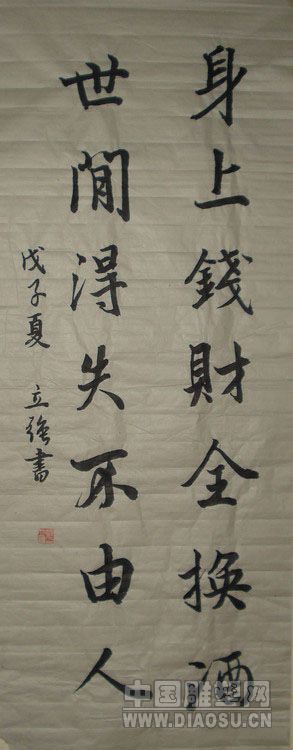 身上錢財全換酒
世間得失不由人
戊子夏 立強書
中国雕塑网
WWW.DIAOSU.CN